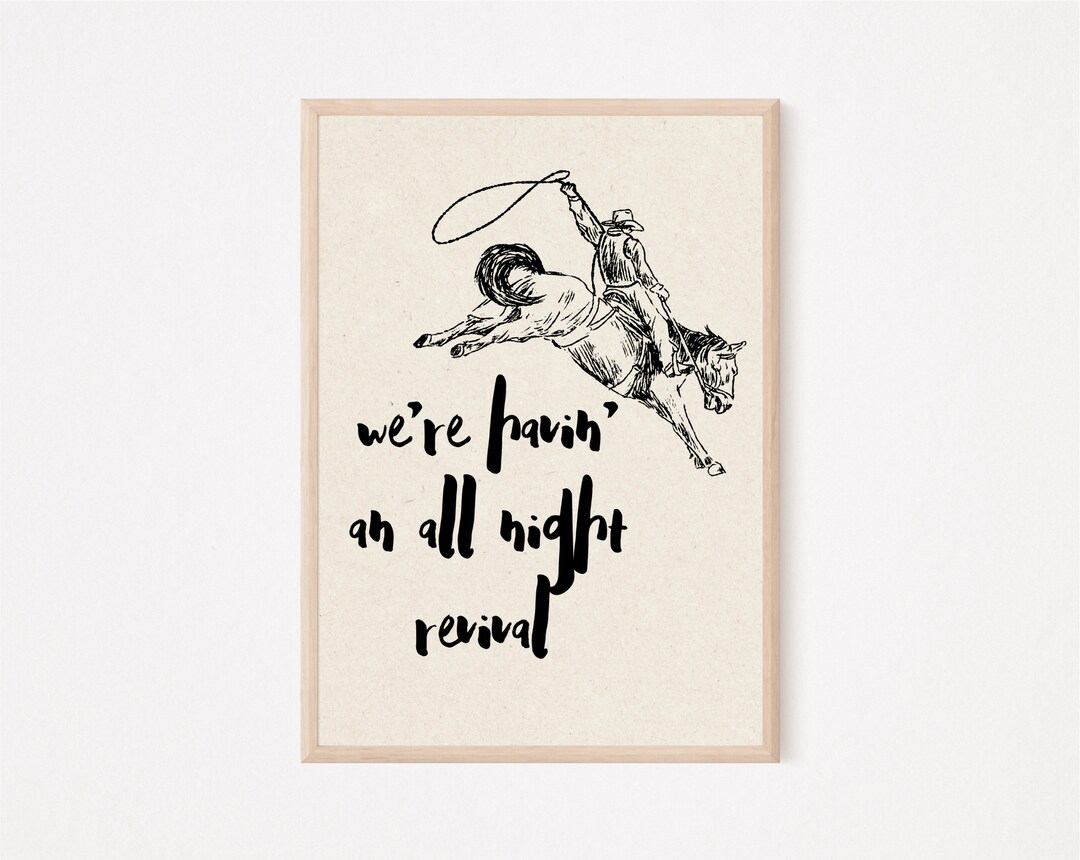 we're havin'
an all night
revival